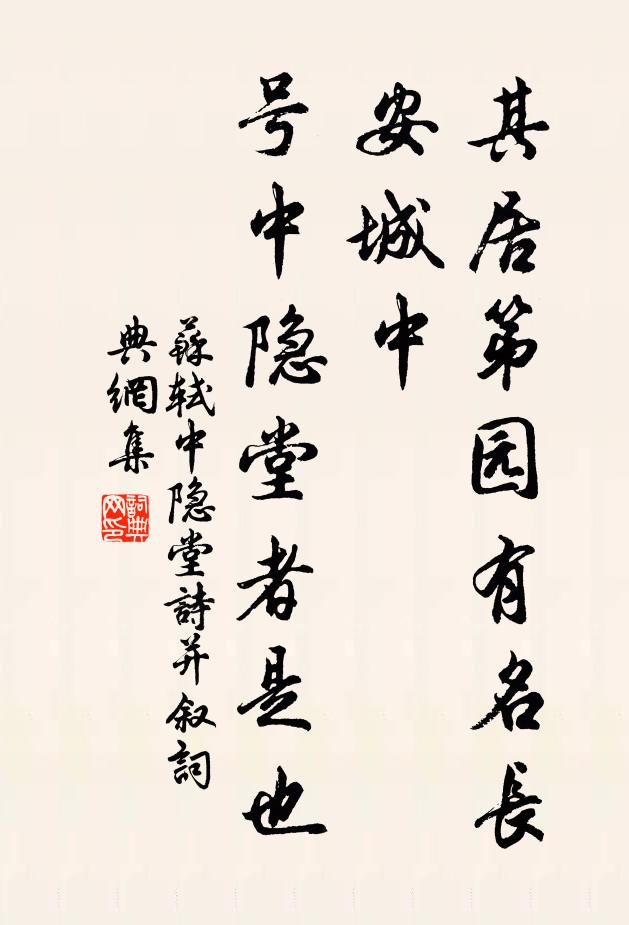 其居第园有名長
安城中
号中隐堂者是也
蘇軾中隐堂詩并叙詞
典網集
詞典
网印